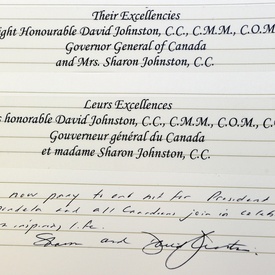 Their Excellencies
ight Honourable David Johnston, C.C., C.M.M., C.O.M.
Governor General of Canada
and Mrs. Sharon Johnston, C.C.
Leurs Excellences
s honorable David Johnston, C.C., C.M.M., C.O.M., C.
Gouverneur général du Canada
et madame Sharon Johnston, C.C.
now pray to out not for President
and all Canadians join in
inspiring life.
Sharon and David Johnston